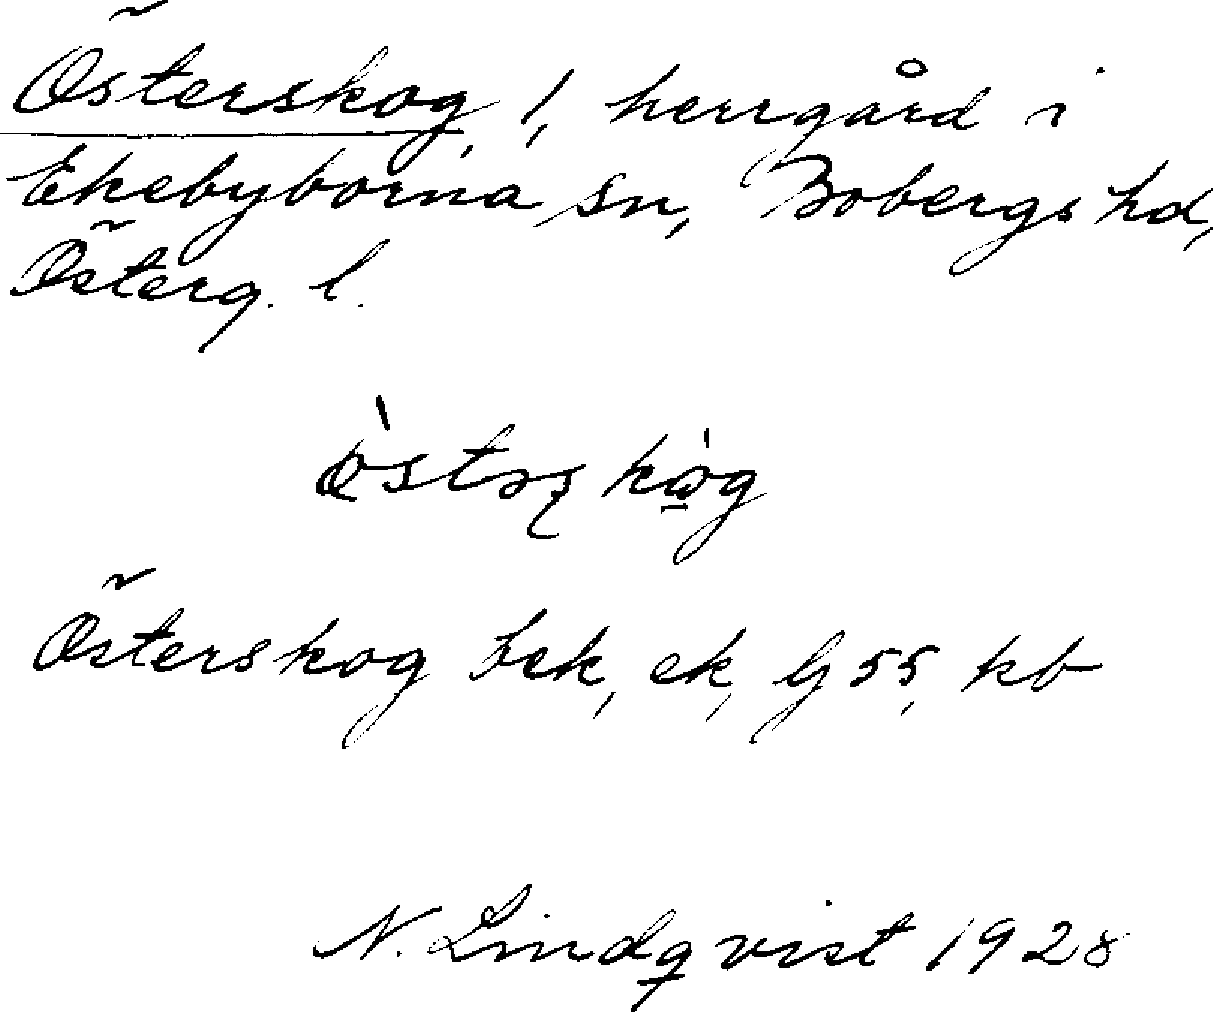 Österskog, 1, herrgård i
Ekebyborna sn, Bobergs hd,
Österg. l.
Österskog bek, ek, G 55, kb
N. Lindqvist 1928